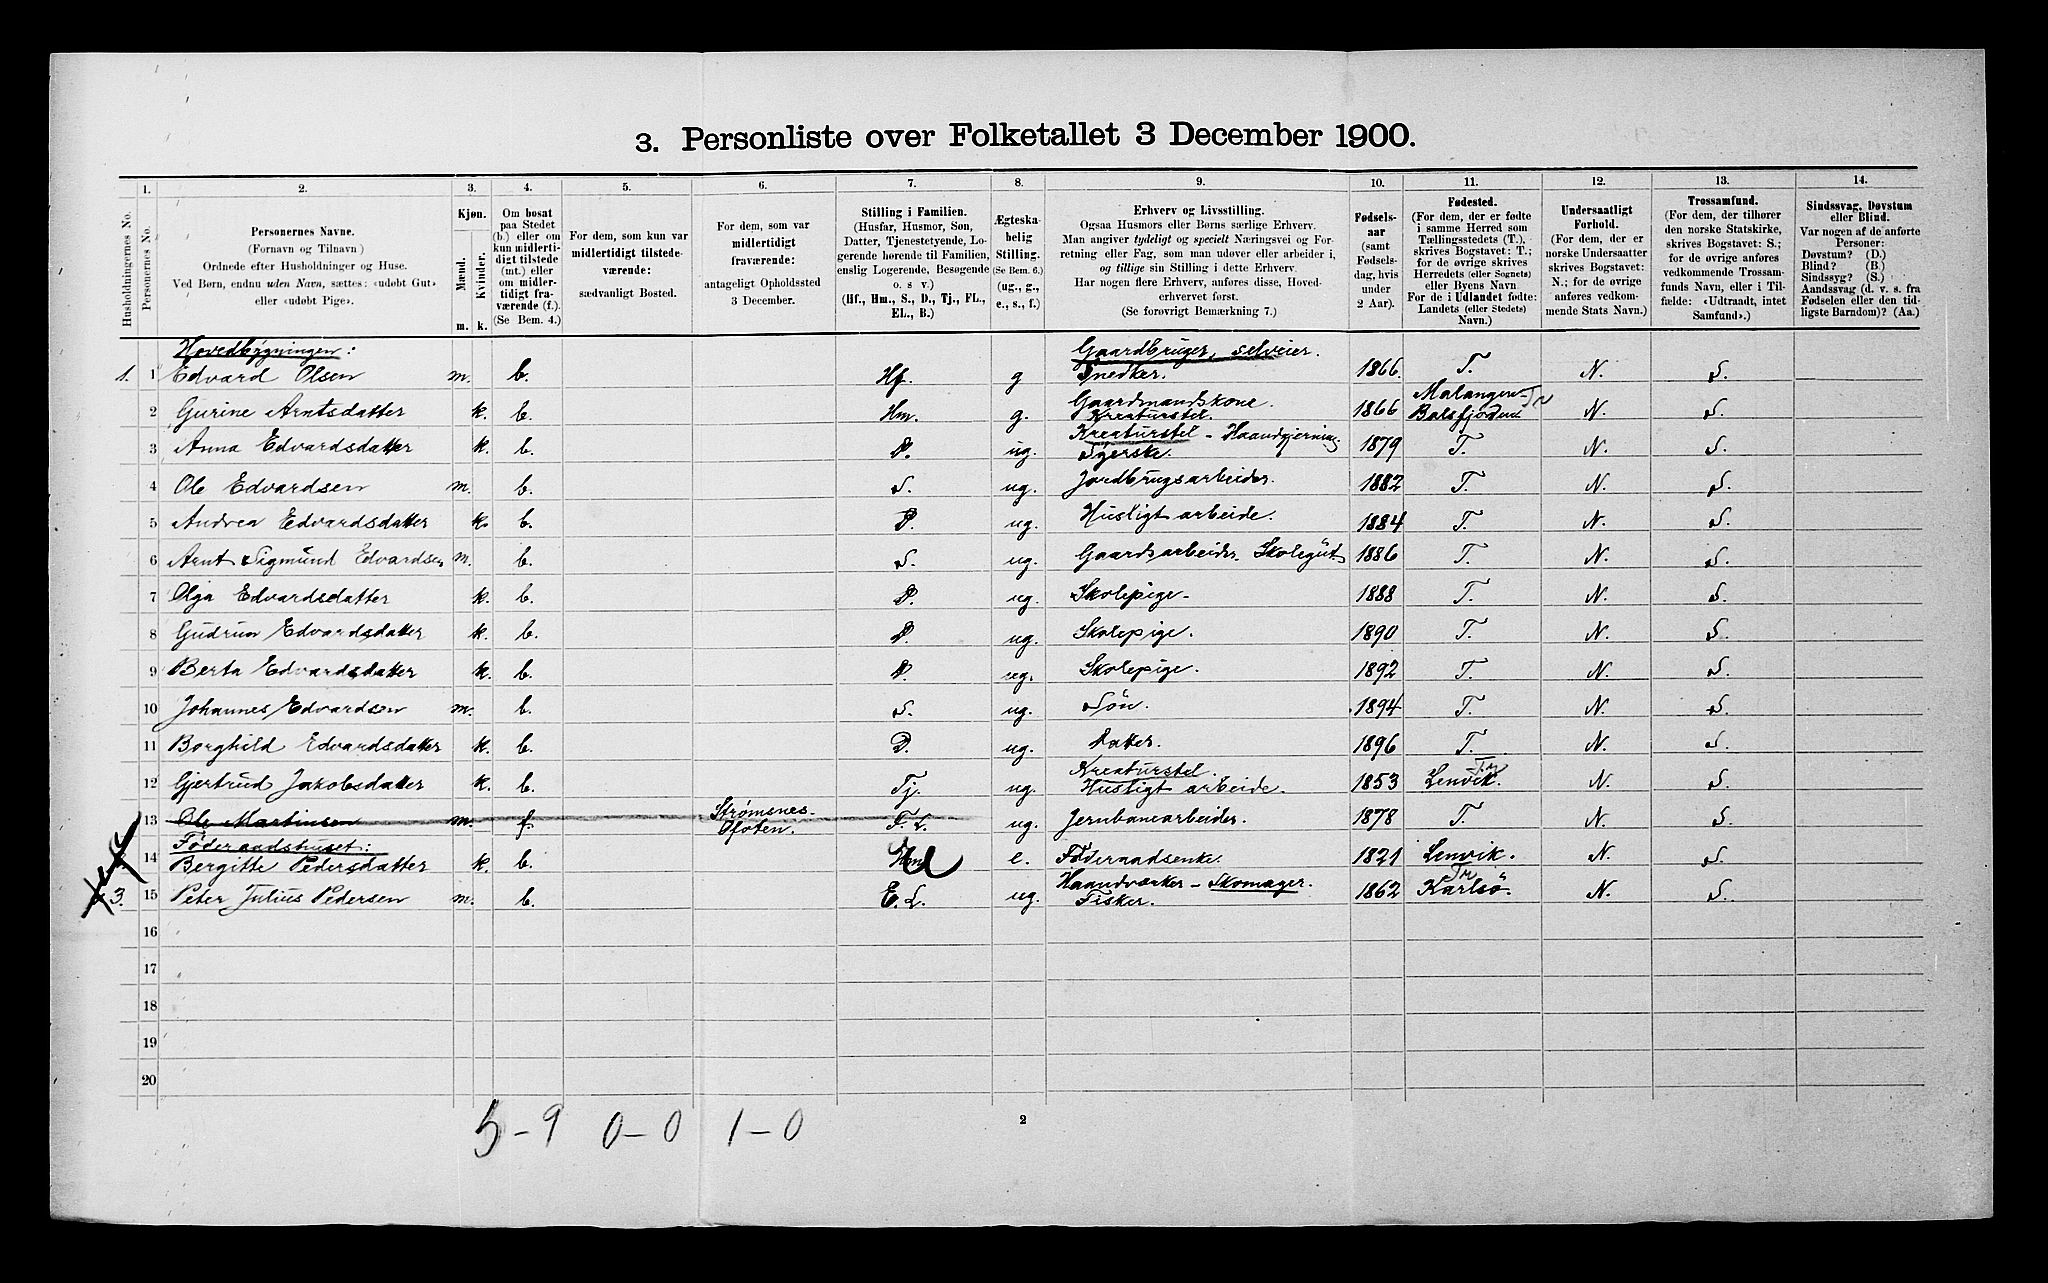 3. Personliste over Folketallet 3 December 1900.
Husholdningernes No.
1.
Personernes No.
2.
Personernes Navne.
(Fornavn og Tilnavn)
Ordnede efter Husholdninger og Huse.
Ved Børn, endnu uden Navn, sættes: «udøbt Gut»
eller «udøbt Pige».
3.
Kjøn.
Mænd.
Kvinder.
m. k.
4.
Om bosat
paa Stedet
(b.) eller om
kun midlerti-
digt tilstede
(mt.) eller
om midler-
tidigt fra-
værende (f.).
(Se Bem. 4.)
5.
For dem, som kun var
midlertidigt tilstede-
værende:
sædvanligt Bosted.
6.
For dem, som var
midlertidigt
fraværende:
antageligt Opholdssted
3 December.
7.
Stilling i Familien.
(Husfar, Husmor, Søn,
Datter, Tjenestetyende, Lo-
gerende hørende til Familien,
enslig Logerende, Besøgende
o. s. v.)
(Hf., Hm., S., D., Tj., FL.,
EL., B.)
8.
Ægteska-
belig
Stilling.
(Se Bem. 6.)
(ug., g.,
e., s., f.)
9.
Erhverv og Livsstilling.
Ogsaa Husmors eller Børns særlige Erhverv.
Man angiver tydeligt og specielt Næringsvei og For-
retning eller Fag, som man udøver eller arbeider i,
og tillige sin Stilling i dette Erhverv.
Har nogen flere Erhverv, anføres disse, Hoved-
erhvervet først.
(Se forøvrigt Bemærkning 7.)
10.
Fødsels-
aar
(samt
Fødsels-
dag, hvis
under
2 Aar).
11.
Fødested.
(For dem, der er fødte
i samme Herred som
Tællingsstedets (T.),
skrives Bogstavet: T.;
for de øvrige skrives
Herredets (eller Sognets)
eller Byens Navn.
For de i Udlandet fødte:
Landets (eller Stedets)
Navn.)
12.
Undersaatligt
Forhold.
(For dem, der er
norske Undersaatter
skrives Bogstavet:
N.; for de øvrige
anføres vedkom-
mende Stats Navn.)
13.
Trossamfund.
(For dem, der tilhører
den norske Statskirke,
skrives Bogstavet: S.;
for de øvrige anføres
vedkommende Trossam-
funds Navn, eller i Til-
fælde: «Udtraadt, intet
Samfund».)
14.
Sindssvag, Døvstum
eller Blind.
Var nogen af de anførte
Personer:
Døvstum? (D.)
Blind? (B.)
Sindssyg? (S.)
Aandssvag (d. v. s. fra
Fødselen eller den tid-
ligste Barndom)? (Aa.)
Hovedbygningen: Gaardbruger, selveier.
1. 1 Edvard Olsen m. b. Hf. g Snedker. 1866 T. N. S.
Gaardmandskone. Malangen Tr
2 Gurine Arntsdatter k. b. Hm. g. Kreaturstel. 1866 Balsfjorden N. S.
Kreaturstel - Haandgjerning
3 Anna Edvardsdatter k. b. D. ug. Syerske. 1879 T. N. S.
4 Ole Edvardsen m. b. S. ug. Jordbrugsarbeider. 1882 T. N. S.
5 Andrea Edvardsdatter k. b. D. ug. Husligt arbeide. 1884 T. N. S.
6 Arnt Sigmund Edvardsen m. b. S. ug. Gaardsarbeider - Skolegut 1886 T. N. S.
7 Olga Edvardsdatter k. b. D. ug. Skolepige - 1888 T. N. S.
8 Gudrun Edvardsdatter k. b. D. ug. Skolepige. 1890 T. N. S.
9 Berta Edvardsdatter k. b. D. ug. Skolepige. 1892 T. N. S.
10 Johannes Edvardsen m. b. S. ug. Søn. 1894 T. N. S.
11 Borghild Edvardsdatter k. b. D. ug. Datter. 1896 T. N. S.
Kreaturstel. Tr
12 Gjertrud Jakobsdatter k. b. Tj. ug. Husligt arbeide. 1853 Lenvik. N. S.
Strømsnes-
13 Ole Martinsen m. f. Ofoten. F. L. ug. Jernbanearbeider. 1878 T. N. S.
Føderaadshuset:
14 Bergitte Pedersdatter k. b. Hm e. Føderaadsenke. 1821 Lenvik. N. S.
Haandværker - Skomager. Tr
3. 15 Peter Julius Pedersen m. b. E. L. ug. Fisker. 1862 Karlsö. N. S.
16
17
18
19
20
5-9 0-0 1-0
2